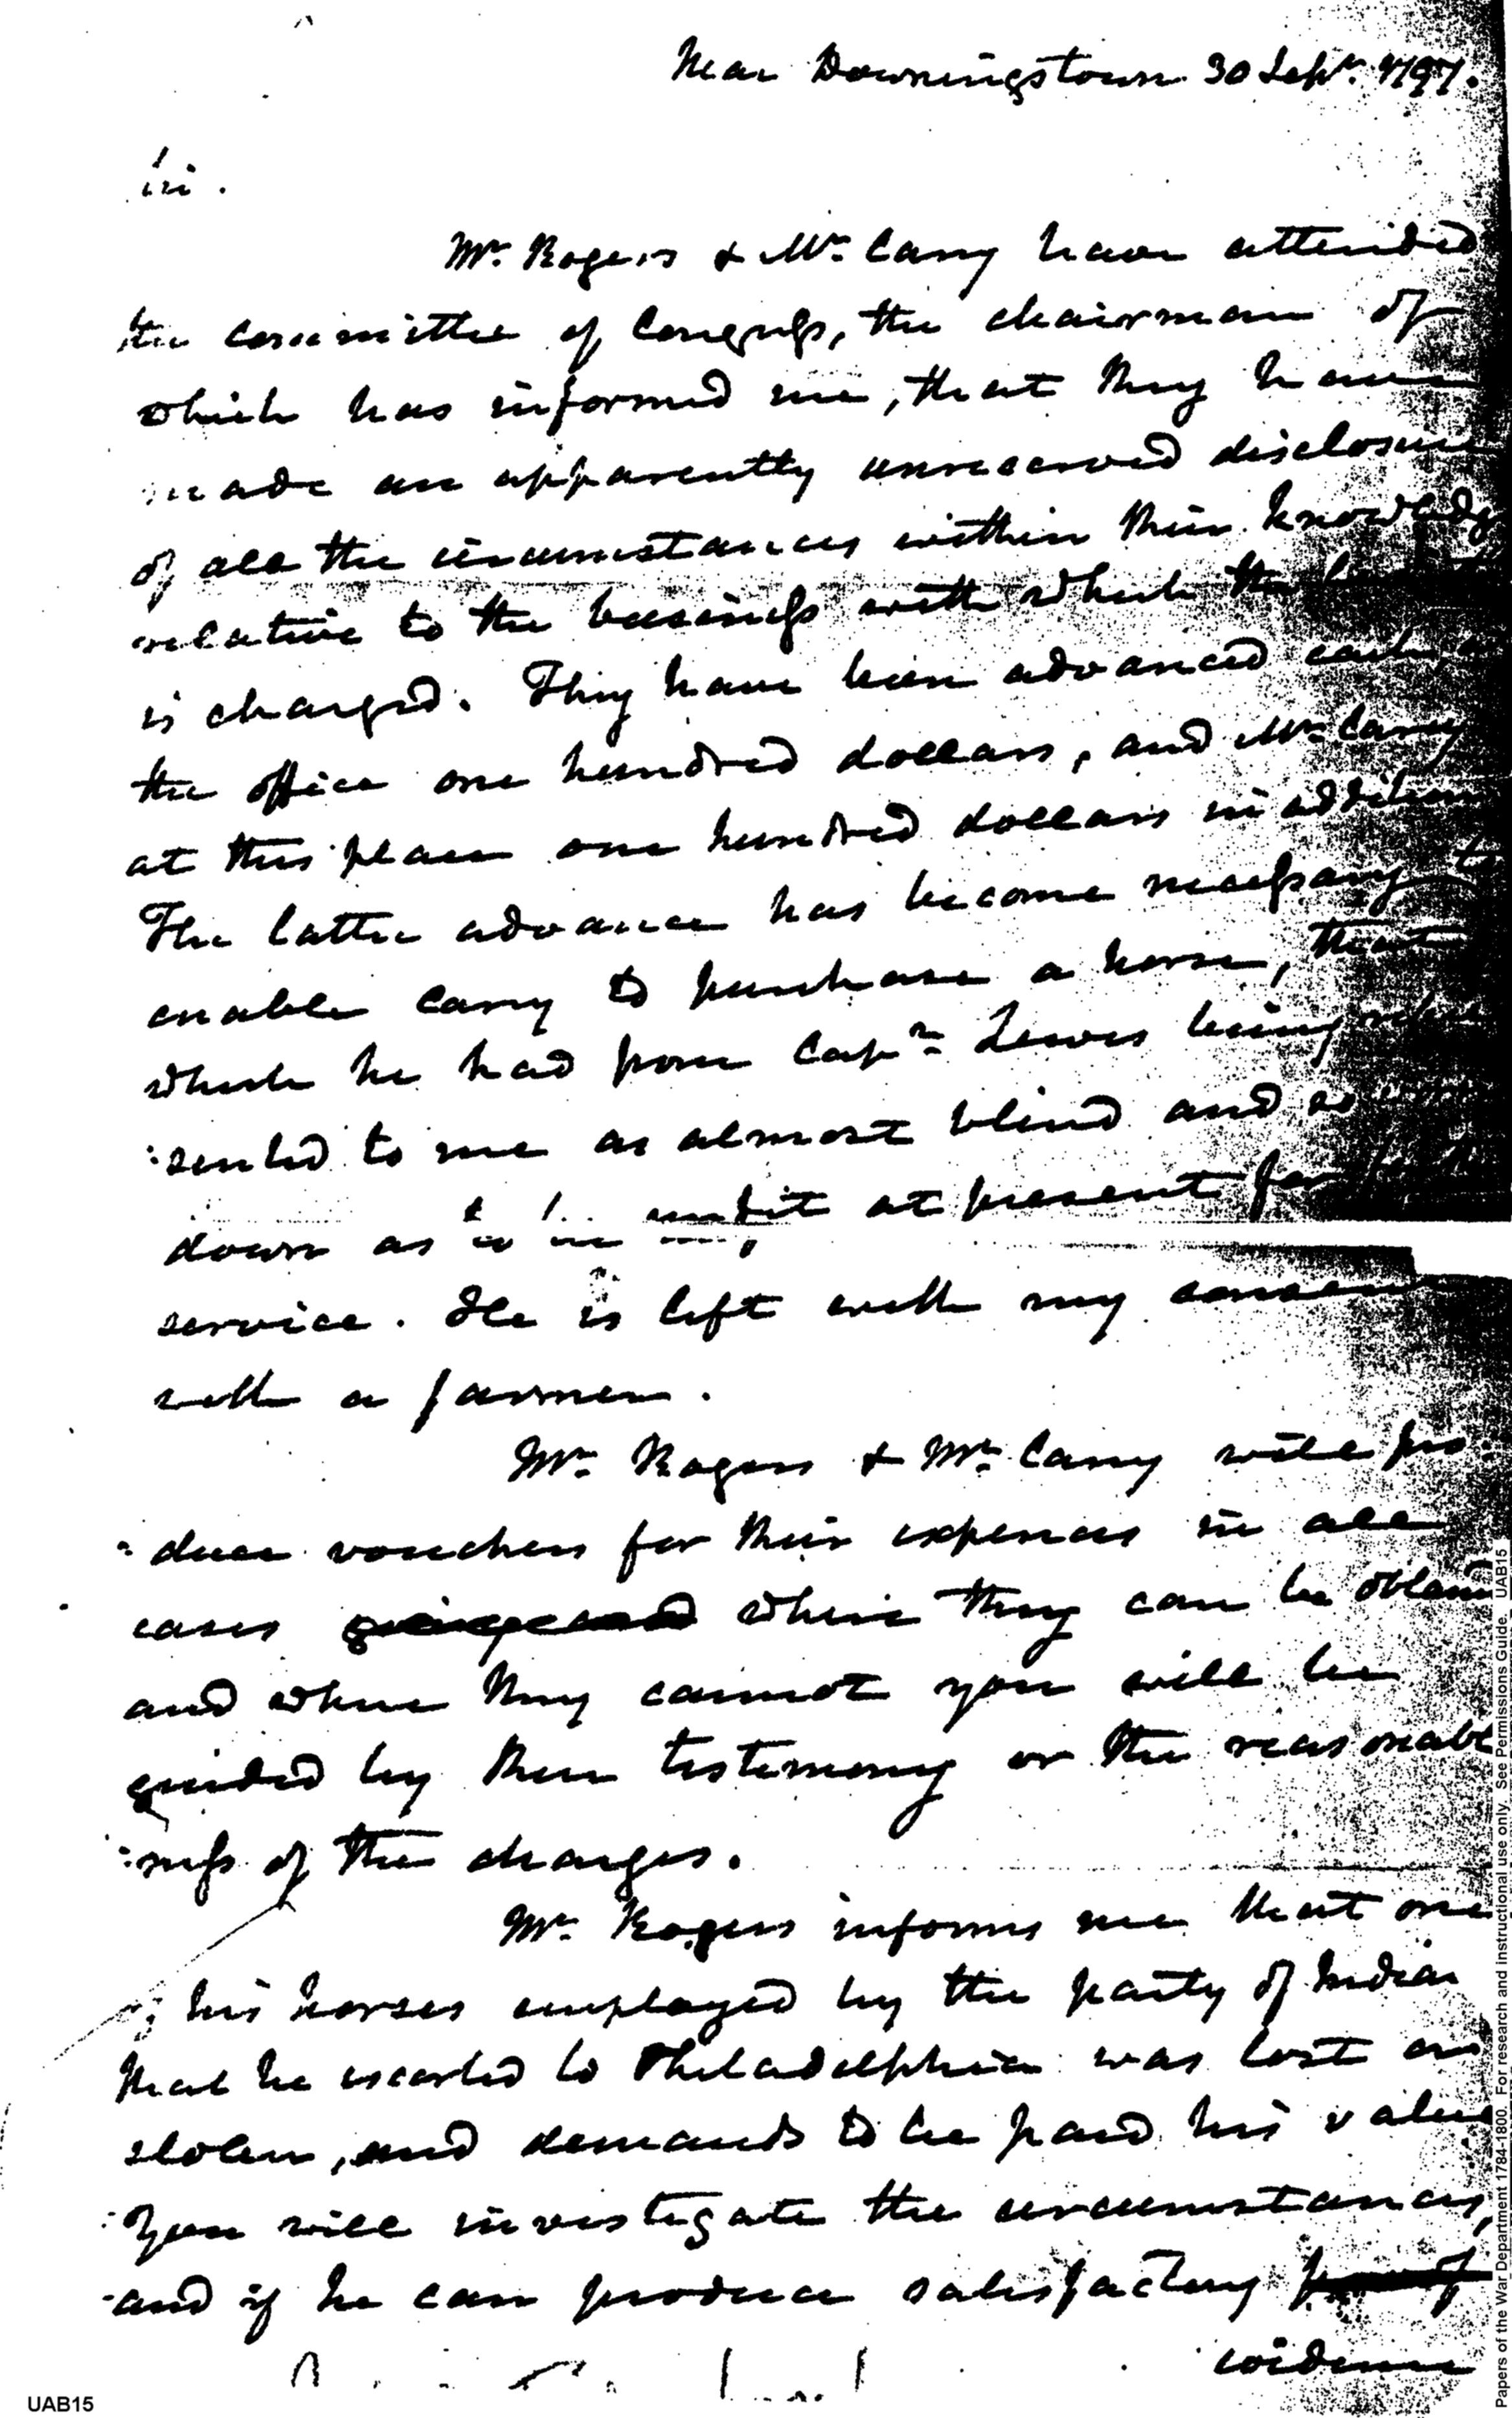 Near Downingstown 30 Sept. 1797.
Sir.
Mr. Rogers & Mr. Carry have attended
the committee of Congress, the chairman of
which has informed me, that they have
made an apparently unreserved disclosure
of all the circumstances within their knowledge
relative to the business with which the
is charged. They have been advanced each
the office one hundred dollars, and Mr. Carry
at this place one hundred dollars in addition
The latter advance has become necessary to
enable Carry to purchase a horse, that
which he had from Capn. Lewis being
:sented to me as almost blind and so
down as to be unfit at present for
service. He is left with my consent
with a farmer.
Mr. Rogers & Mr. Carry will pro
:duce vouchers for their expences in all
cases where they can be obtained
and where they cannot you will be
guided by their testimony or the reasonable
:ness of the charges.
Mr. Rogers informs me that one
of his horses employed by the party of Indian
that he escorted to Philadelphia was lost or
stolen, and demands to be paid his value
You will investigate the circumstances,
and if he can produce satisfactory proof
evidence
UAB15
Papers of the War Department 1784-1800. For research and instructional use only. See Permissions Guide. UAB15